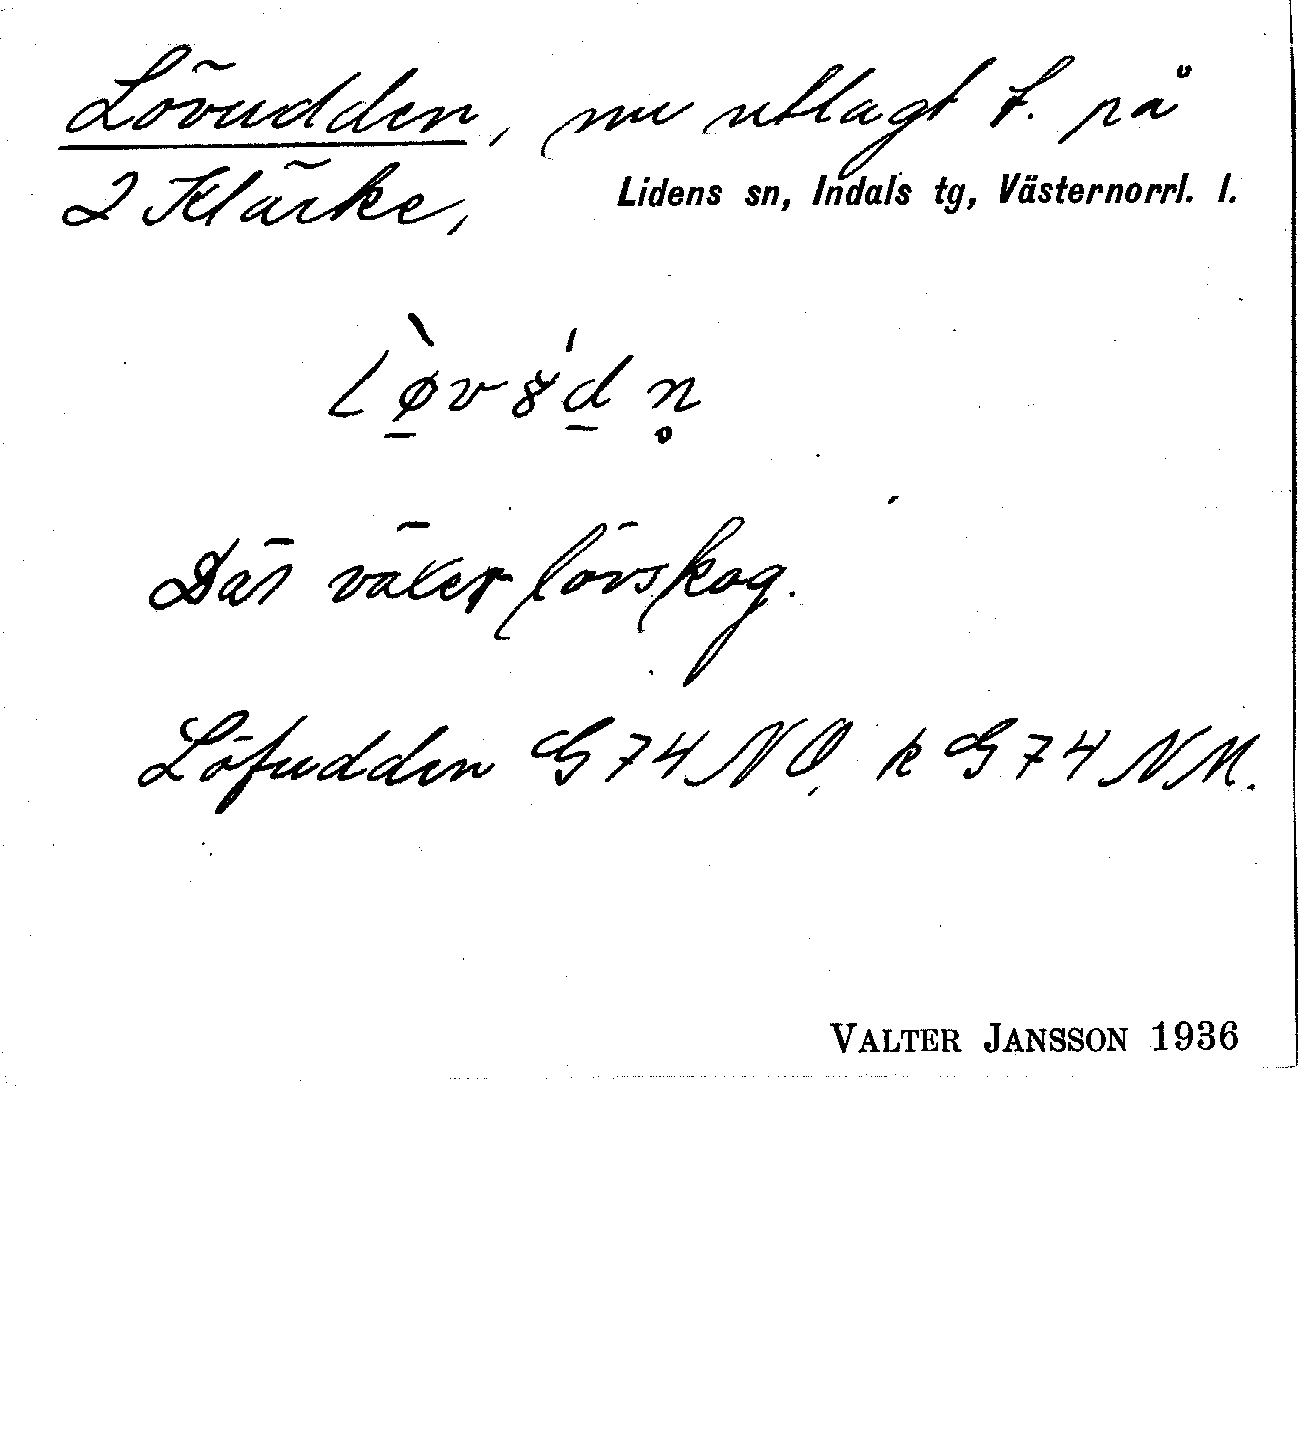 Lövudden, nu utlagt t. på
2 Klärke,
Lidens sn, Indals tg, Västernorrl. l.
Där växer lövskog.
Löfudden G 74 NO, k G 74 NM.
VALTER JANSSON 1936